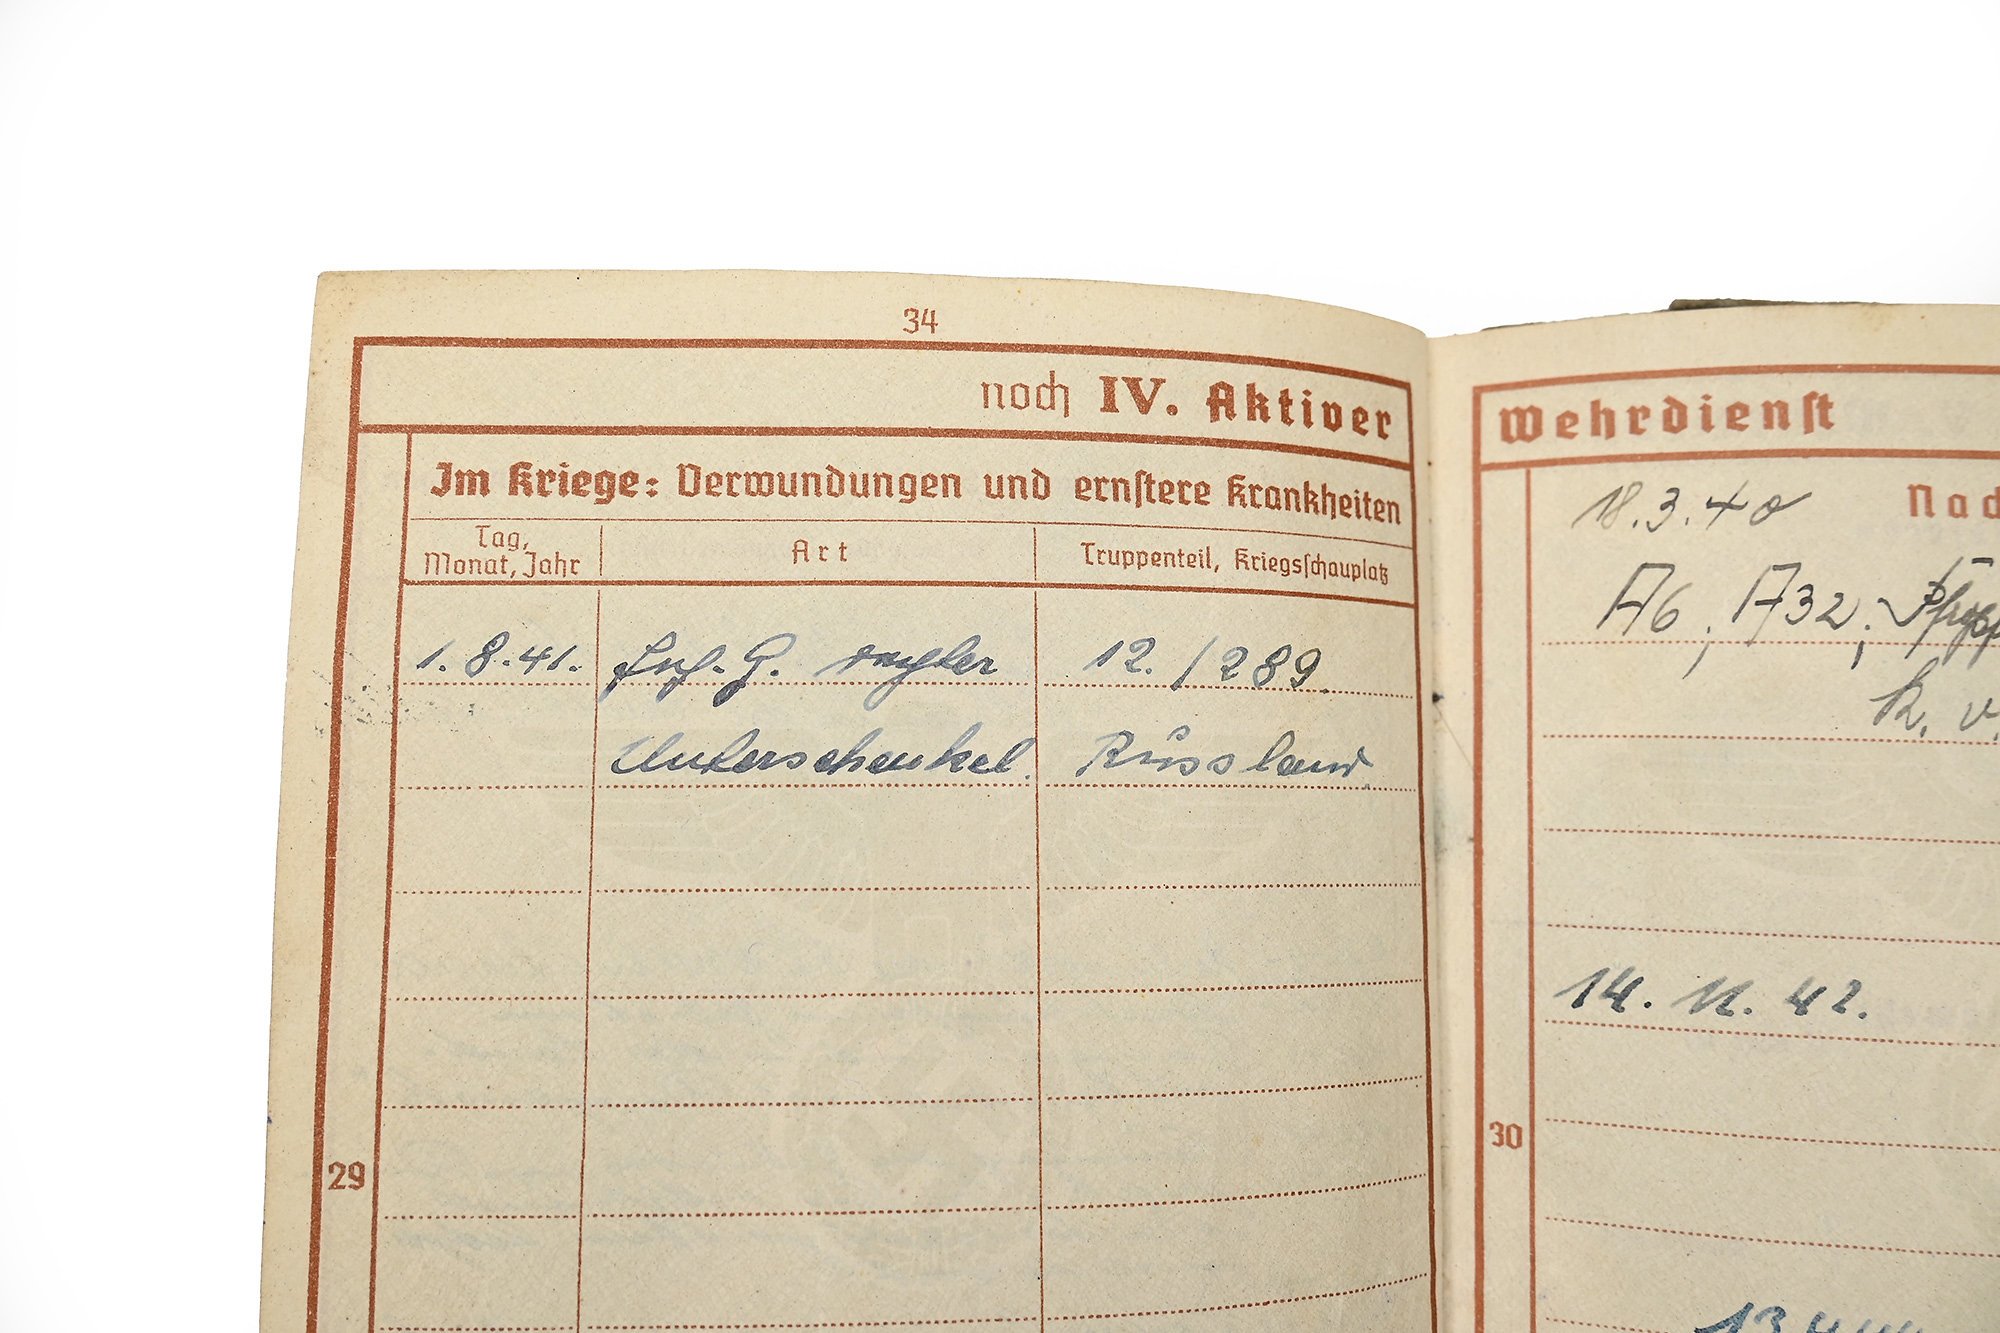 34
noch IV. Aktiver
Im Kriege: Verwundungen und ernstere Krankheiten
Tag,
Monat, Jahr
Art
Truppenteil, Kriegsschauplatz
1.8.41. Inf. G. rechter 12./289.
Unterschenkel. Russland
29
Wehrdienst
18.3.40 Nac
A6, A32,
k. v.
14. 11. 42.
30